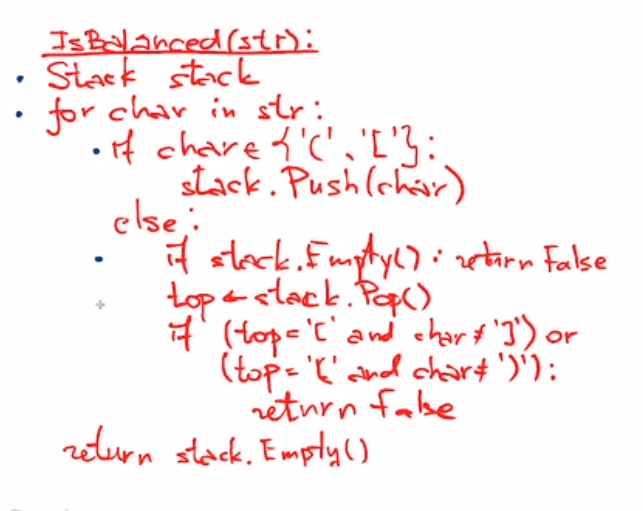 IsBalanced(str):
• Stack stack
• for char in str:
• if char ∈ {'(', '['}:
stack.Push(char)
else:
• if stack.Empty(): return False
top ← stack.Pop()
if (top = '[' and char ≠ ']') or
(top = '(' and char ≠ ')'):
return False
return stack.Empty()